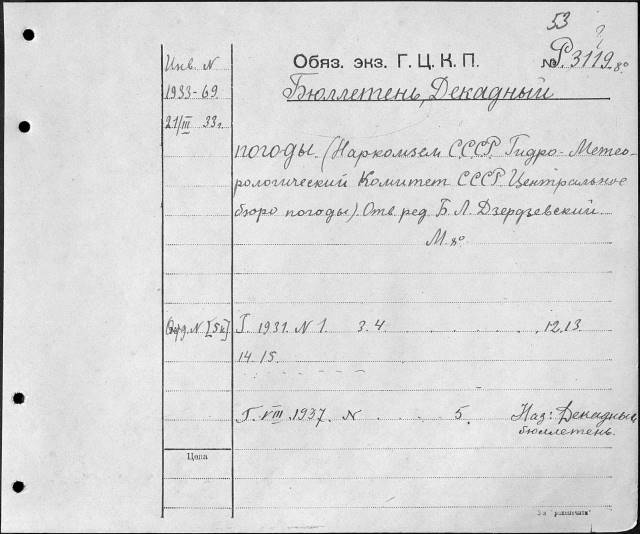 53
Инв N
Обяз. экз. Г. Ц. К. П. № Р. 3119 8°
1933-69.
Бюллетень, Декадный
21/III 33г.
погоды. (Наркомзем СССР. Гидро-Метео-
рологический Комитет СССР. Центральное
бюро погоды). Отв. ред. Б. Л. Дзердзевский.
М. 8°
N [5к]. Г. 1931. N 1. 3. 4 . . . . . . 12. 13.
14. 15.
Г. VIII. 1937. N . . . . 5. Наз: Декадный
бюллетень.
Цена